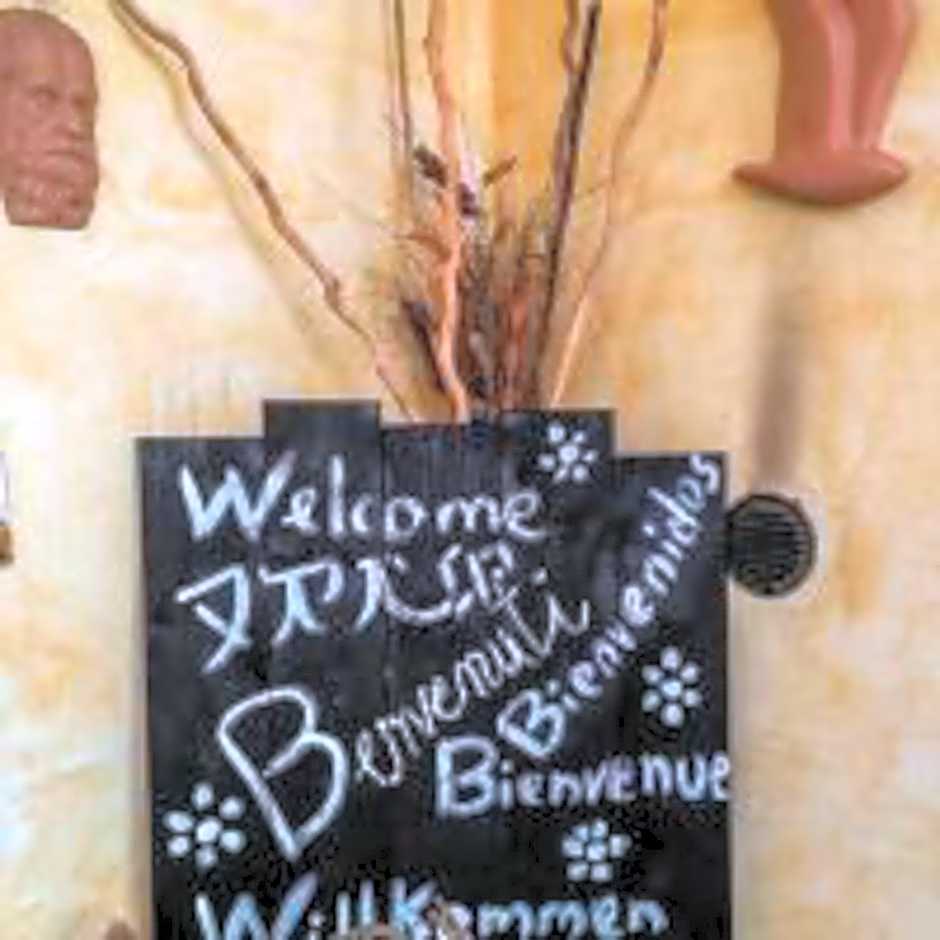 Welcome
Benvenuti
Bienvenidos
Bienvenue
Willkommen